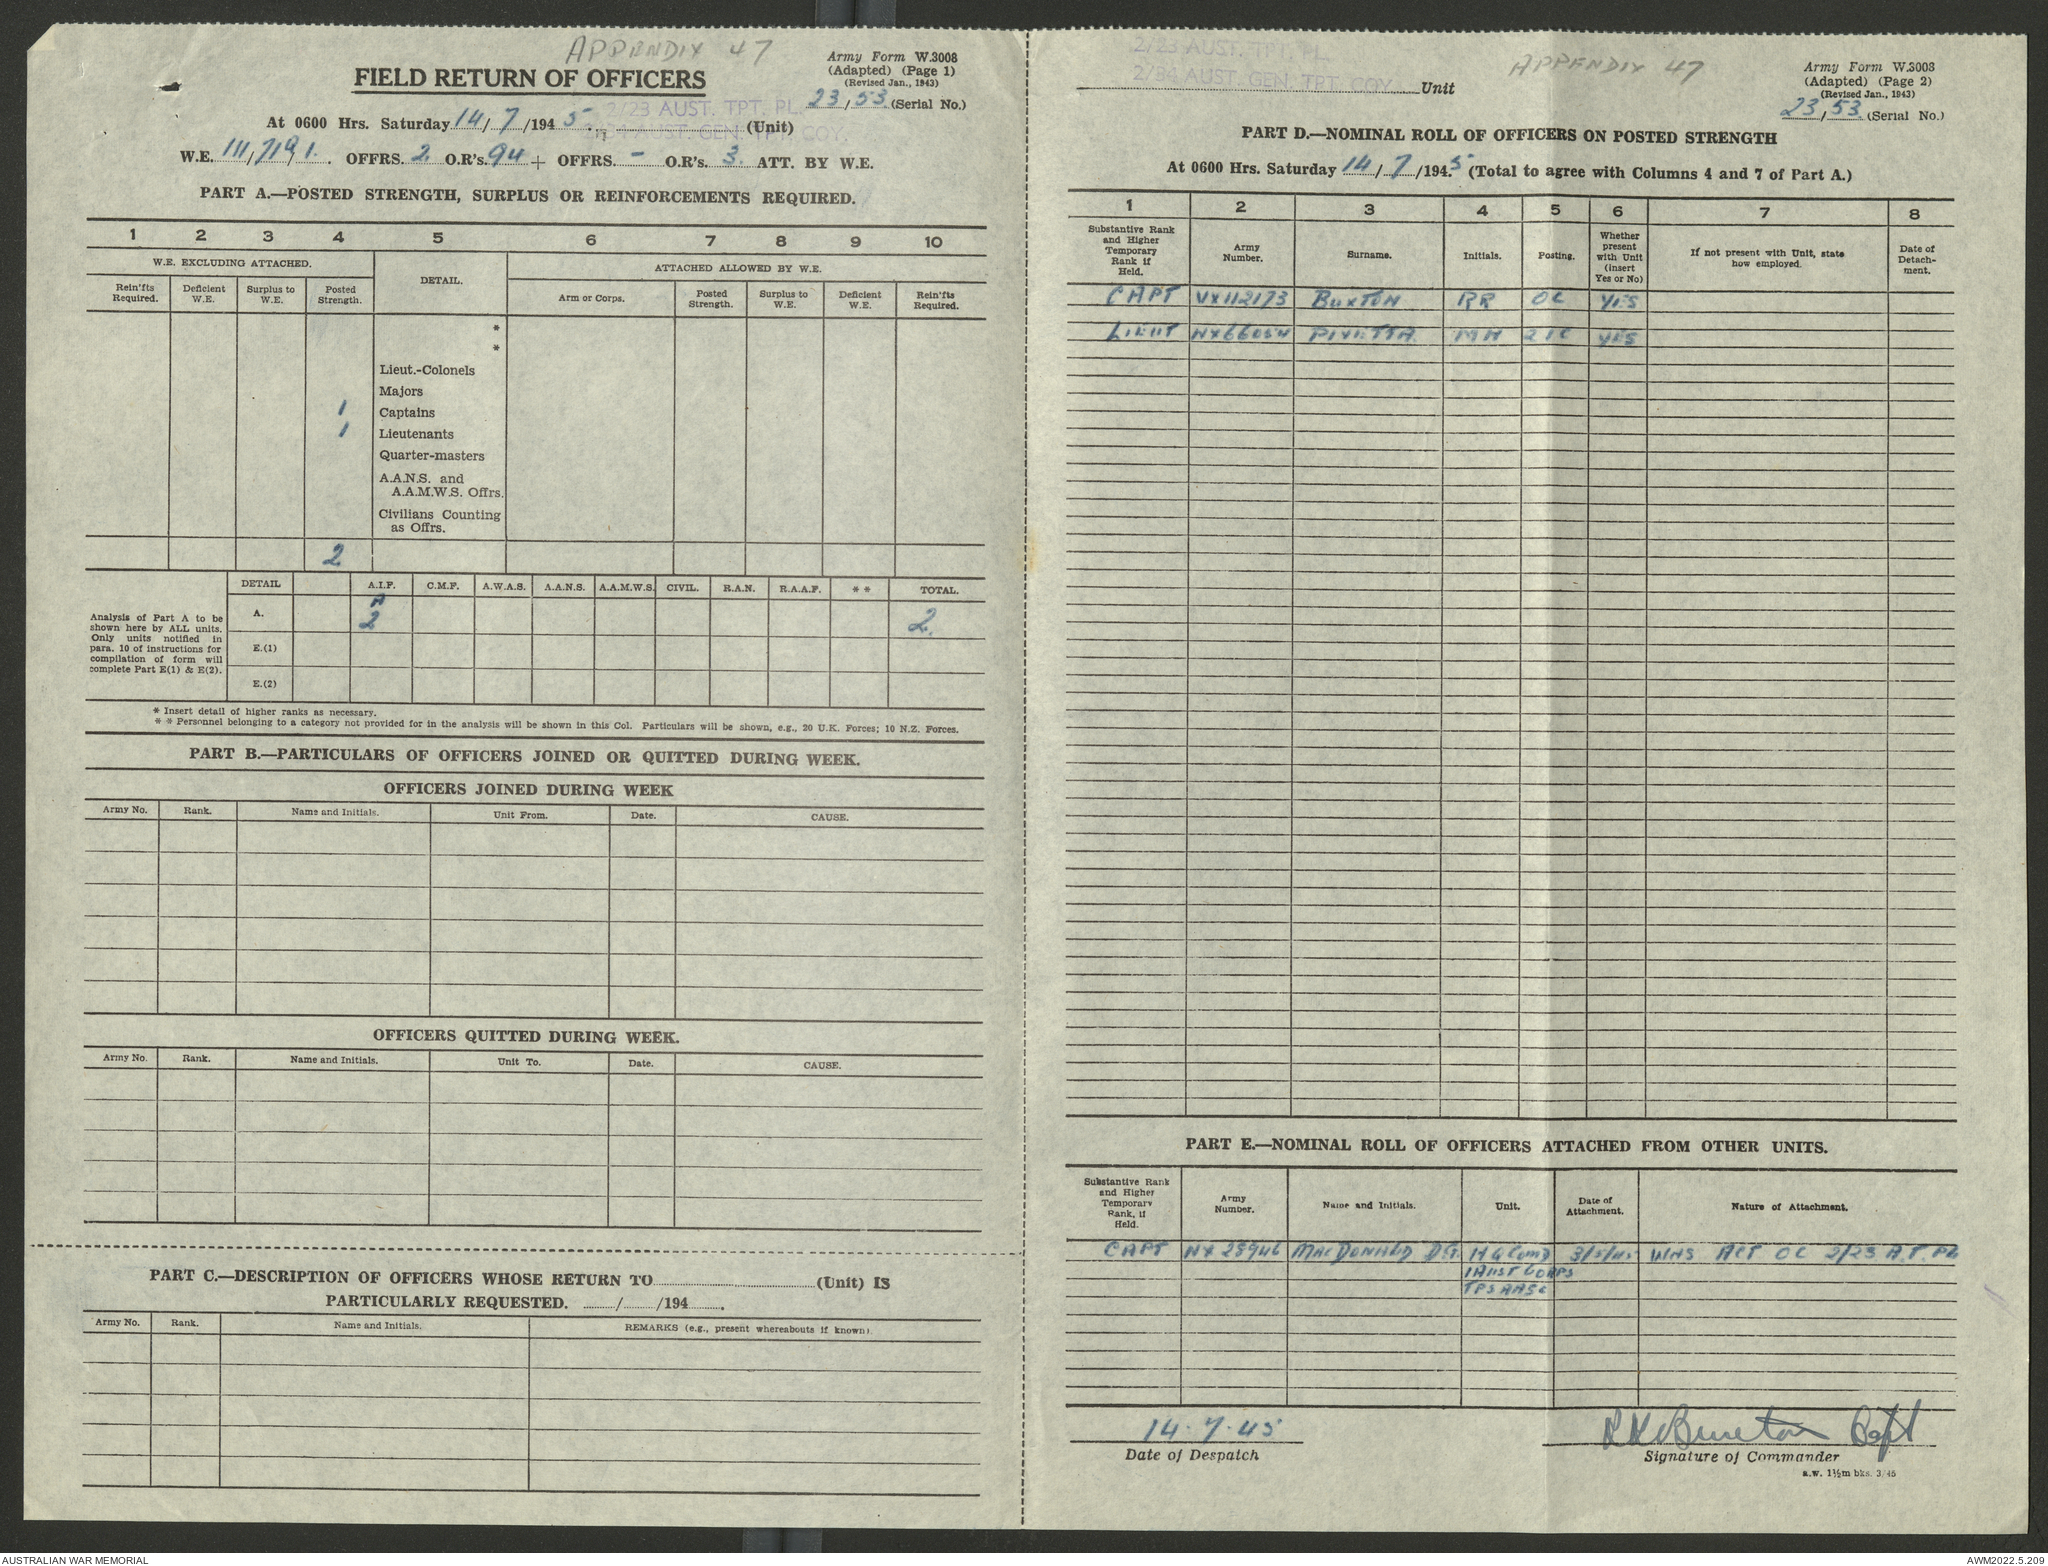 APPENDIX 47
Army Form W.3008
(Adapted) (Page 1)
(Revised Jan., 1943)
FIELD RETURN OF OFFICERS
23/53 (Serial No.)
2/23 AUST. TPT. PL.
At 0600 Hrs. Saturday 14/7/1945. (Unit)
AUST. GEN. TPT. COY.
W.E. 111/719/1. OFFRS. 2 O.R's. 94 + OFFRS. - O.R's. 3. ATT. BY W.E.
PART A.—POSTED STRENGTH, SURPLUS OR REINFORCEMENTS REQUIRED.
1 2 3 4 5 6 7 8 9 10
W.E. EXCLUDING ATTACHED. DETAIL. ATTACHED ALLOWED BY W.E.
Rein'fts Required. Deficient W.E. Surplus to W.E. Posted Strength. Arm or Corps. Posted Strength. Surplus to W.E. Deficient W.E. Rein'fts Required.
*
*
Lieut.-Colonels
Majors
1 Captains
1 Lieutenants
Quarter-masters
A.A.N.S. and
A.A.M.W.S. Offrs.
Civilians Counting
as Offrs.
2
DETAIL A.I.F. C.M.F. A.W.A.S. A.A.N.S. A.A.M.W.S. CIVIL. R.A.N. R.A.A.F. * * TOTAL.
Analysis of Part A to be
shown here by ALL units.
Only units notified in
para. 10 of instructions for
compilation of form will
complete Part E(1) & E(2).
A. A 2 2.
E.(1)
E.(2)
* Insert detail of higher ranks as necessary.
* * Personnel belonging to a category not provided for in the analysis will be shown in this Col. Particulars will be shown, e.g., 20 U.K. Forces; 10 N.Z. Forces.
PART B.—PARTICULARS OF OFFICERS JOINED OR QUITTED DURING WEEK.
OFFICERS JOINED DURING WEEK
Army No. Rank. Name and Initials. Unit From. Date. CAUSE.
OFFICERS QUITTED DURING WEEK.
Army No. Rank. Name and Initials. Unit To. Date. CAUSE.
PART C.—DESCRIPTION OF OFFICERS WHOSE RETURN TO (Unit) IS
PARTICULARLY REQUESTED. / /194 .
Army No. Rank. Name and Initials. REMARKS (e.g., present whereabouts if known).
2/23 AUST. TPT. PL.
2/34 AUST. GEN. TPT. COY. Unit
APPENDIX 47
Army Form W.3008
(Adapted) (Page 2)
(Revised Jan., 1943)
23/53 (Serial No.)
PART D.—NOMINAL ROLL OF OFFICERS ON POSTED STRENGTH
At 0600 Hrs. Saturday 14/7/1945 (Total to agree with Columns 4 and 7 of Part A.)
1 2 3 4 5 6 7 8
Substantive Rank and Higher Temporary Rank if Held. Army Number. Surname. Initials. Posting. Whether present with Unit (insert Yes or No) If not present with Unit, state how employed. Date of Detachment.
CAPT VX112173 BUXTON RR OC YES
LIEUT NX66054 PIVETTA MH 2IC YES
PART E.—NOMINAL ROLL OF OFFICERS ATTACHED FROM OTHER UNITS.
Substantive Rank and Higher Temporary Rank, if Held. Army Number. Name and Initials. Unit. Date of Attachment. Nature of Attachment.
CAPT NX 28946 MACDONALD D.G. HQ Comd 3/5/45 WHS ACT OC 2/23 A.T. PL
1 AUST CORPS
TPS AASC
14.7.45
Date of Despatch
RR Buxton Capt
Signature of Commander
a.w. 1½m bks. 3/45
AUSTRALIAN WAR MEMORIAL
AWM2022.5.209